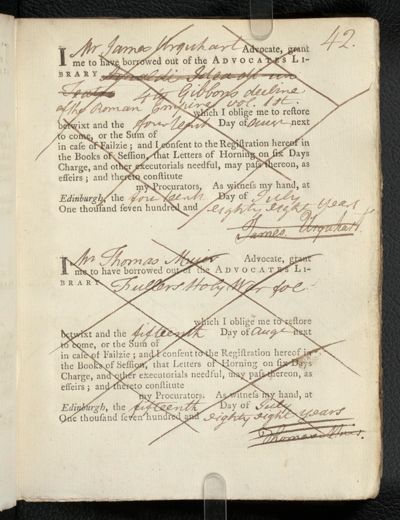 42.
I Mr James Urquhart Advocate, grant
me to have borrowed out of the ADVOCATES LI-
BRARY
4to Gibbons decline
of the Roman Empire vol. 1st.
which I oblige me to reſtore
betwixt and the fourteenth Day of Augt next
to come, or the Sum of
in caſe of Failzie; and I conſent to the Regiſtration hereof in
the Books of Seſſion, that Letters of Horning on ſix Days
Charge, and other executorials needful, may paſs thereon, as
effeirs; and thereto conſtitute
my Procurators. As witneſs my hand, at
Edinburgh, the fourteenth Day of July
One thouſand ſeven hundred and eighty eight years
James Urquhart
I Mr Thomas Muir Advocate, grant
me to have borrowed out of the ADVOCATES LI-
BRARY Fullers Holy War fol.
which I oblige me to reſtore
betwixt and the fifteenth Day of Augt next
to come, or the Sum of
in caſe of Failzie; and I conſent to the Regiſtration hereof in
the Books of Seſſion, that Letters of Horning on ſix Days
Charge, and other executorials needful, may paſs thereon, as
effeirs; and thereto conſtitute
my Procurators. As witneſs my hand, at
Edinburgh, the fifteenth Day of July
One thouſand ſeven hundred and eighty eight years
Thomas Muir.